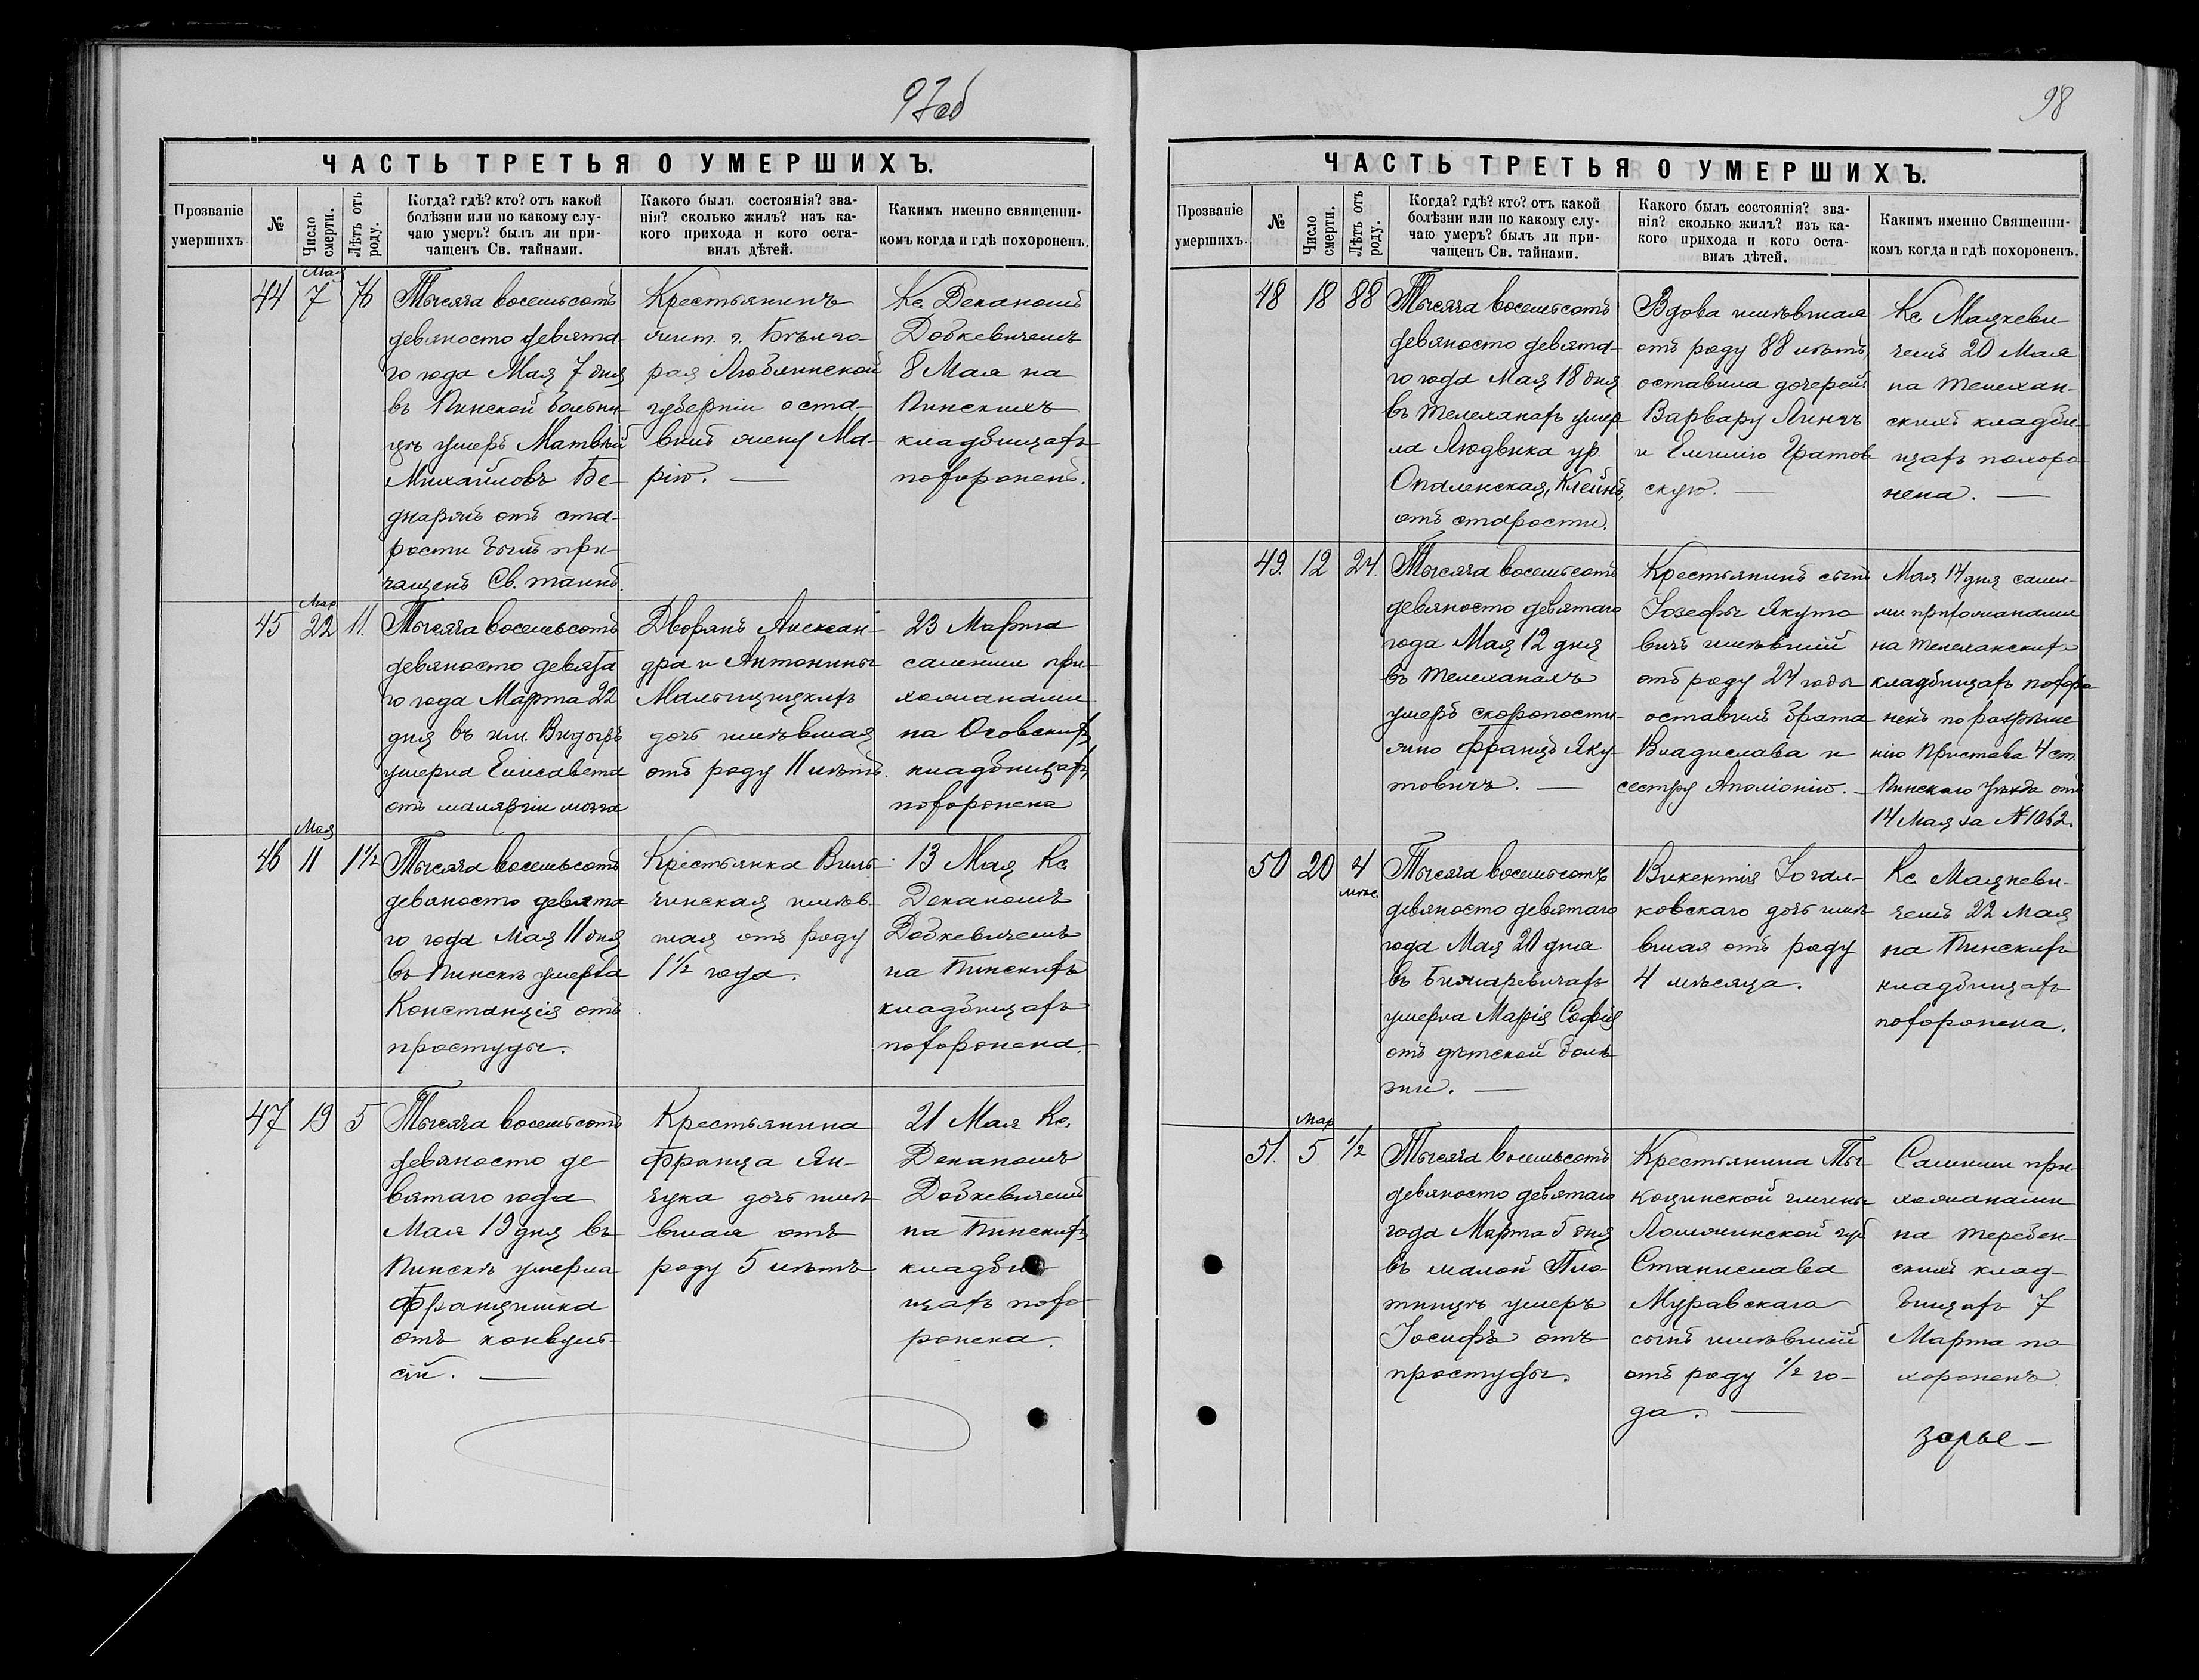 97об
ЧАСТЬ ТРЕТЬЯ О УМЕРШИХЪ.
Прозваніе
умершихъ.
№
Число
смерти.
Лѣтъ отъ
роду.
Когда? гдѣ? кто? отъ какой
болѣзни или по какому слу-
чаю умеръ? былъ ли при-
чащенъ Св. тайнами.
Какого былъ состоянія? зва-
нія? сколько жилъ? изъ ка-
кого прихода и кого оста-
вилъ дѣтей.
Какимъ именно священни-
комъ когда и гдѣ похороненъ.
44
Мая
7
76
Тысяча восемьсотъ
девяносто девята-
го года Мая 7 дня
въ Пинской больни-
цѣ умеръ Матвѣй
Михайловъ Бе-
днарякъ отъ ста-
рости былъ при-
чащенъ Св. таинъ.
Крестьянинъ
жит. г. Бѣлго-
рая Люблинской
губерніи оста-
вилъ жену Ма-
рію. —
Кс. Деканомъ
Добкевичемъ
8 Мая на
Пинскихъ
кладбищахъ
похороненъ.
45
Мар
22
11.
Тысяча восемьсотъ
девяносто девята
го года Марта 22
дня въ им.
умерла Елисавета
отъ маляріи мозга
Дворянъ Алексан-
дра и Антонины
дочь имѣвшая
отъ роду 11 лѣтъ.
23 Марта
самими при-
хожанами
на Осовскихъ
кладбищахъ
похоронена
46
Мая
11
1½
Тысяча восемьсотъ
девяносто девята
го года Мая 11 дня
въ Пинскѣ умерла
Констанція отъ
простуды.
Крестьянка Виль-
чинская имѣв-
шая отъ роду
1½ года.
13 Мая Кс
Деканомъ
Добкевичемъ
на Пинскихъ
кладбищахъ
похоронена.
47
19
5
Тысяча восемьсотъ
девяносто де-
вятаго года
Мая 19 дня въ
Пинскѣ умерла
Францишка
отъ конвуль-
сій. —
Крестьянина
Франца Ян-
чука дочь имѣ
вшая отъ
роду 5 лѣтъ
21 Мая Кс.
Деканомъ
Добкевичемъ
на Пинскихъ
кладби-
щахъ похо-
ронена.
98
ЧАСТЬ ТРЕТЬЯ О УМЕРШИХЪ.
Прозваніе
умершихъ.
№
Число
смерти.
Лѣтъ отъ
роду.
Когда? гдѣ? кто? отъ какой
болѣзни или по какому слу-
чаю умеръ? былъ ли при-
чащенъ Св. тайнами.
Какого былъ состоянія? зва-
нія? сколько жилъ? изъ ка-
кого прихода и кого оста-
вилъ дѣтей.
Какимъ именно Священни-
комъ когда и гдѣ похороненъ.
48
18
88
Тысяча восемьсотъ
девяносто девята-
го года Мая 18 дня
въ Телеханахъ умер
ла Людвика ур.
Опаленская, Клейнъ
отъ старости.
Вдова имѣвшая
отъ роду 88 лѣтъ
оставила дочерей
Варвару Линчъ
и Емилію Гратов
скую. —
Кс Мацкеви
чемъ 20 Мая
на Телехан-
скихъ кладби-
щахъ похоро
нена. —
49.
12
24.
Тысяча восемьсотъ
девяносто девятаго
года Мая 12 дня
въ Телеханахъ
умеръ скоропости-
жно Францъ Яку
товичъ. —
Крестьянинъ сынъ
Іозефы Якуто
вичъ имѣвшій
отъ роду 24 года
оставилъ брата
Владислава и
сестру Аполіонію. —
Мая 14 дня сами-
ми прихожанами
на Телеханскихъ
кладбищахъ похоро
ненъ по разрѣше
нію Пристава 4 ст.
Пинскаго Уѣзда отъ
14 Мая за № 1062.
50
20
4
мѣс.
Тысяча восемьсотъ
девяносто девятаго
года Мая 20 дня
въ
умерла Марія Софія
отъ дѣтской болѣ
зни. —
Викентія
ковскаго дочь имѣ
вшая отъ роду
4 мѣсяца.
Кс Мацкеви-
чемъ 22 Мая
на Пинскихъ
кладбищахъ
похоронена.
51.
Мар
5
½
Тысяча восемьсотъ
девяносто девятаго
года Марта 5 дня
въ малой Пло-
тницѣ умеръ
Іосифъ отъ
простуды.
Крестьянина Ты-
коцинской гмины
Ломжинской губ
Станислава
Муравскаго
сынъ имѣвшій
отъ роду ½ го-
да. —
Самими при-
хожанами
на Теребен-
скихъ клад-
бищахъ 7
Марта по-
хороненъ.